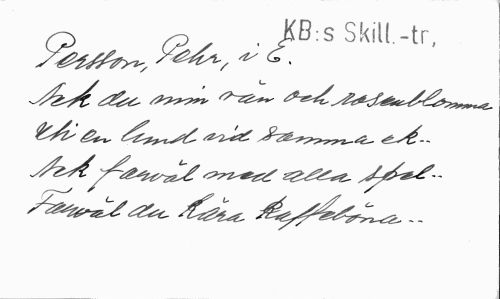 KB:s Skill.-tr,
Persson, Pehr, i E.
Ack du min vän och rosenblomma
Uti en lund vid samma ek..
Ack farväl med alla spel..
Farwäl du kära Kaffeböna...